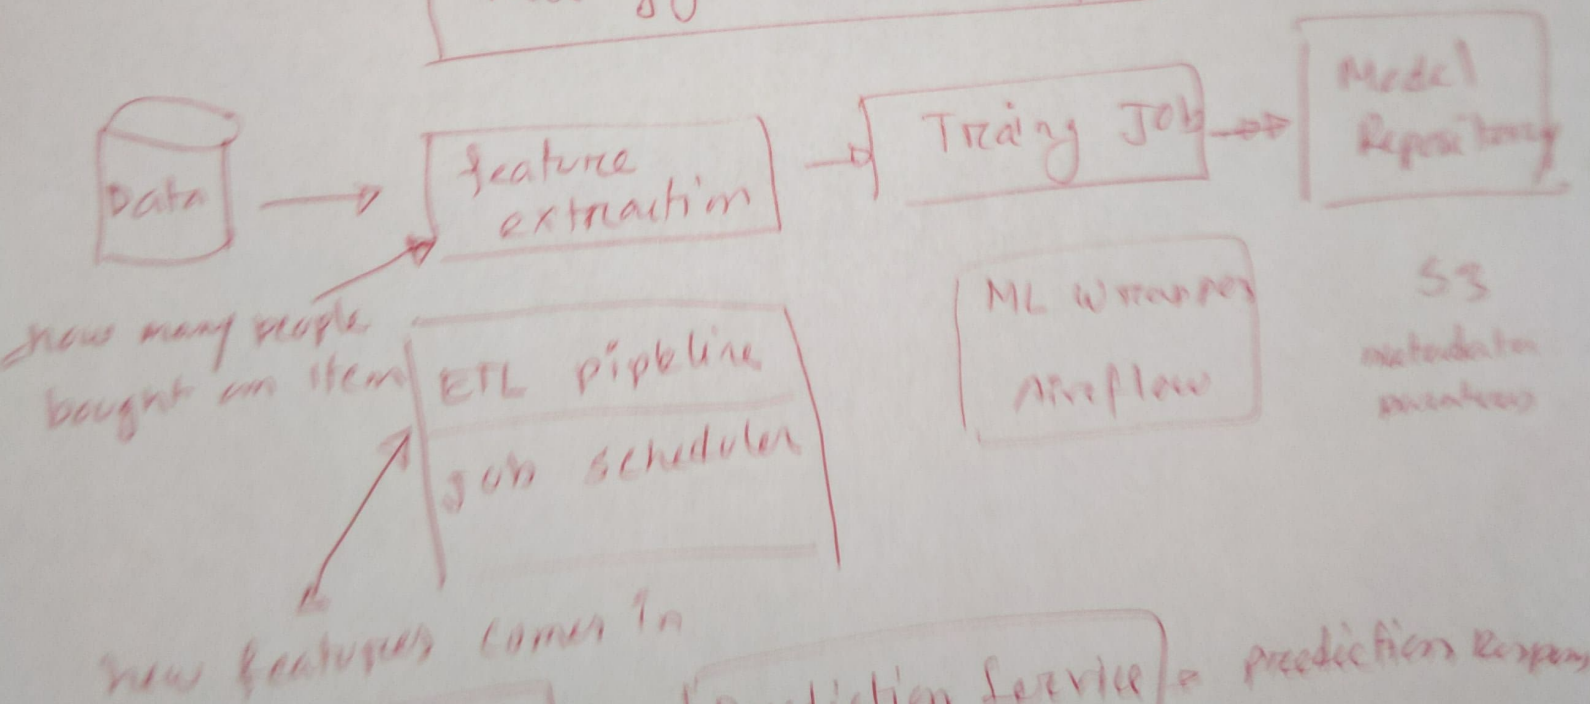 Data
feature
extraction
Traing JOB
Model
Repository
how many people
bought an item
ETL pipeline
Job scheduler
ML Wrapper
Airflow
S3
metadata
new features comes in
Service
prediction